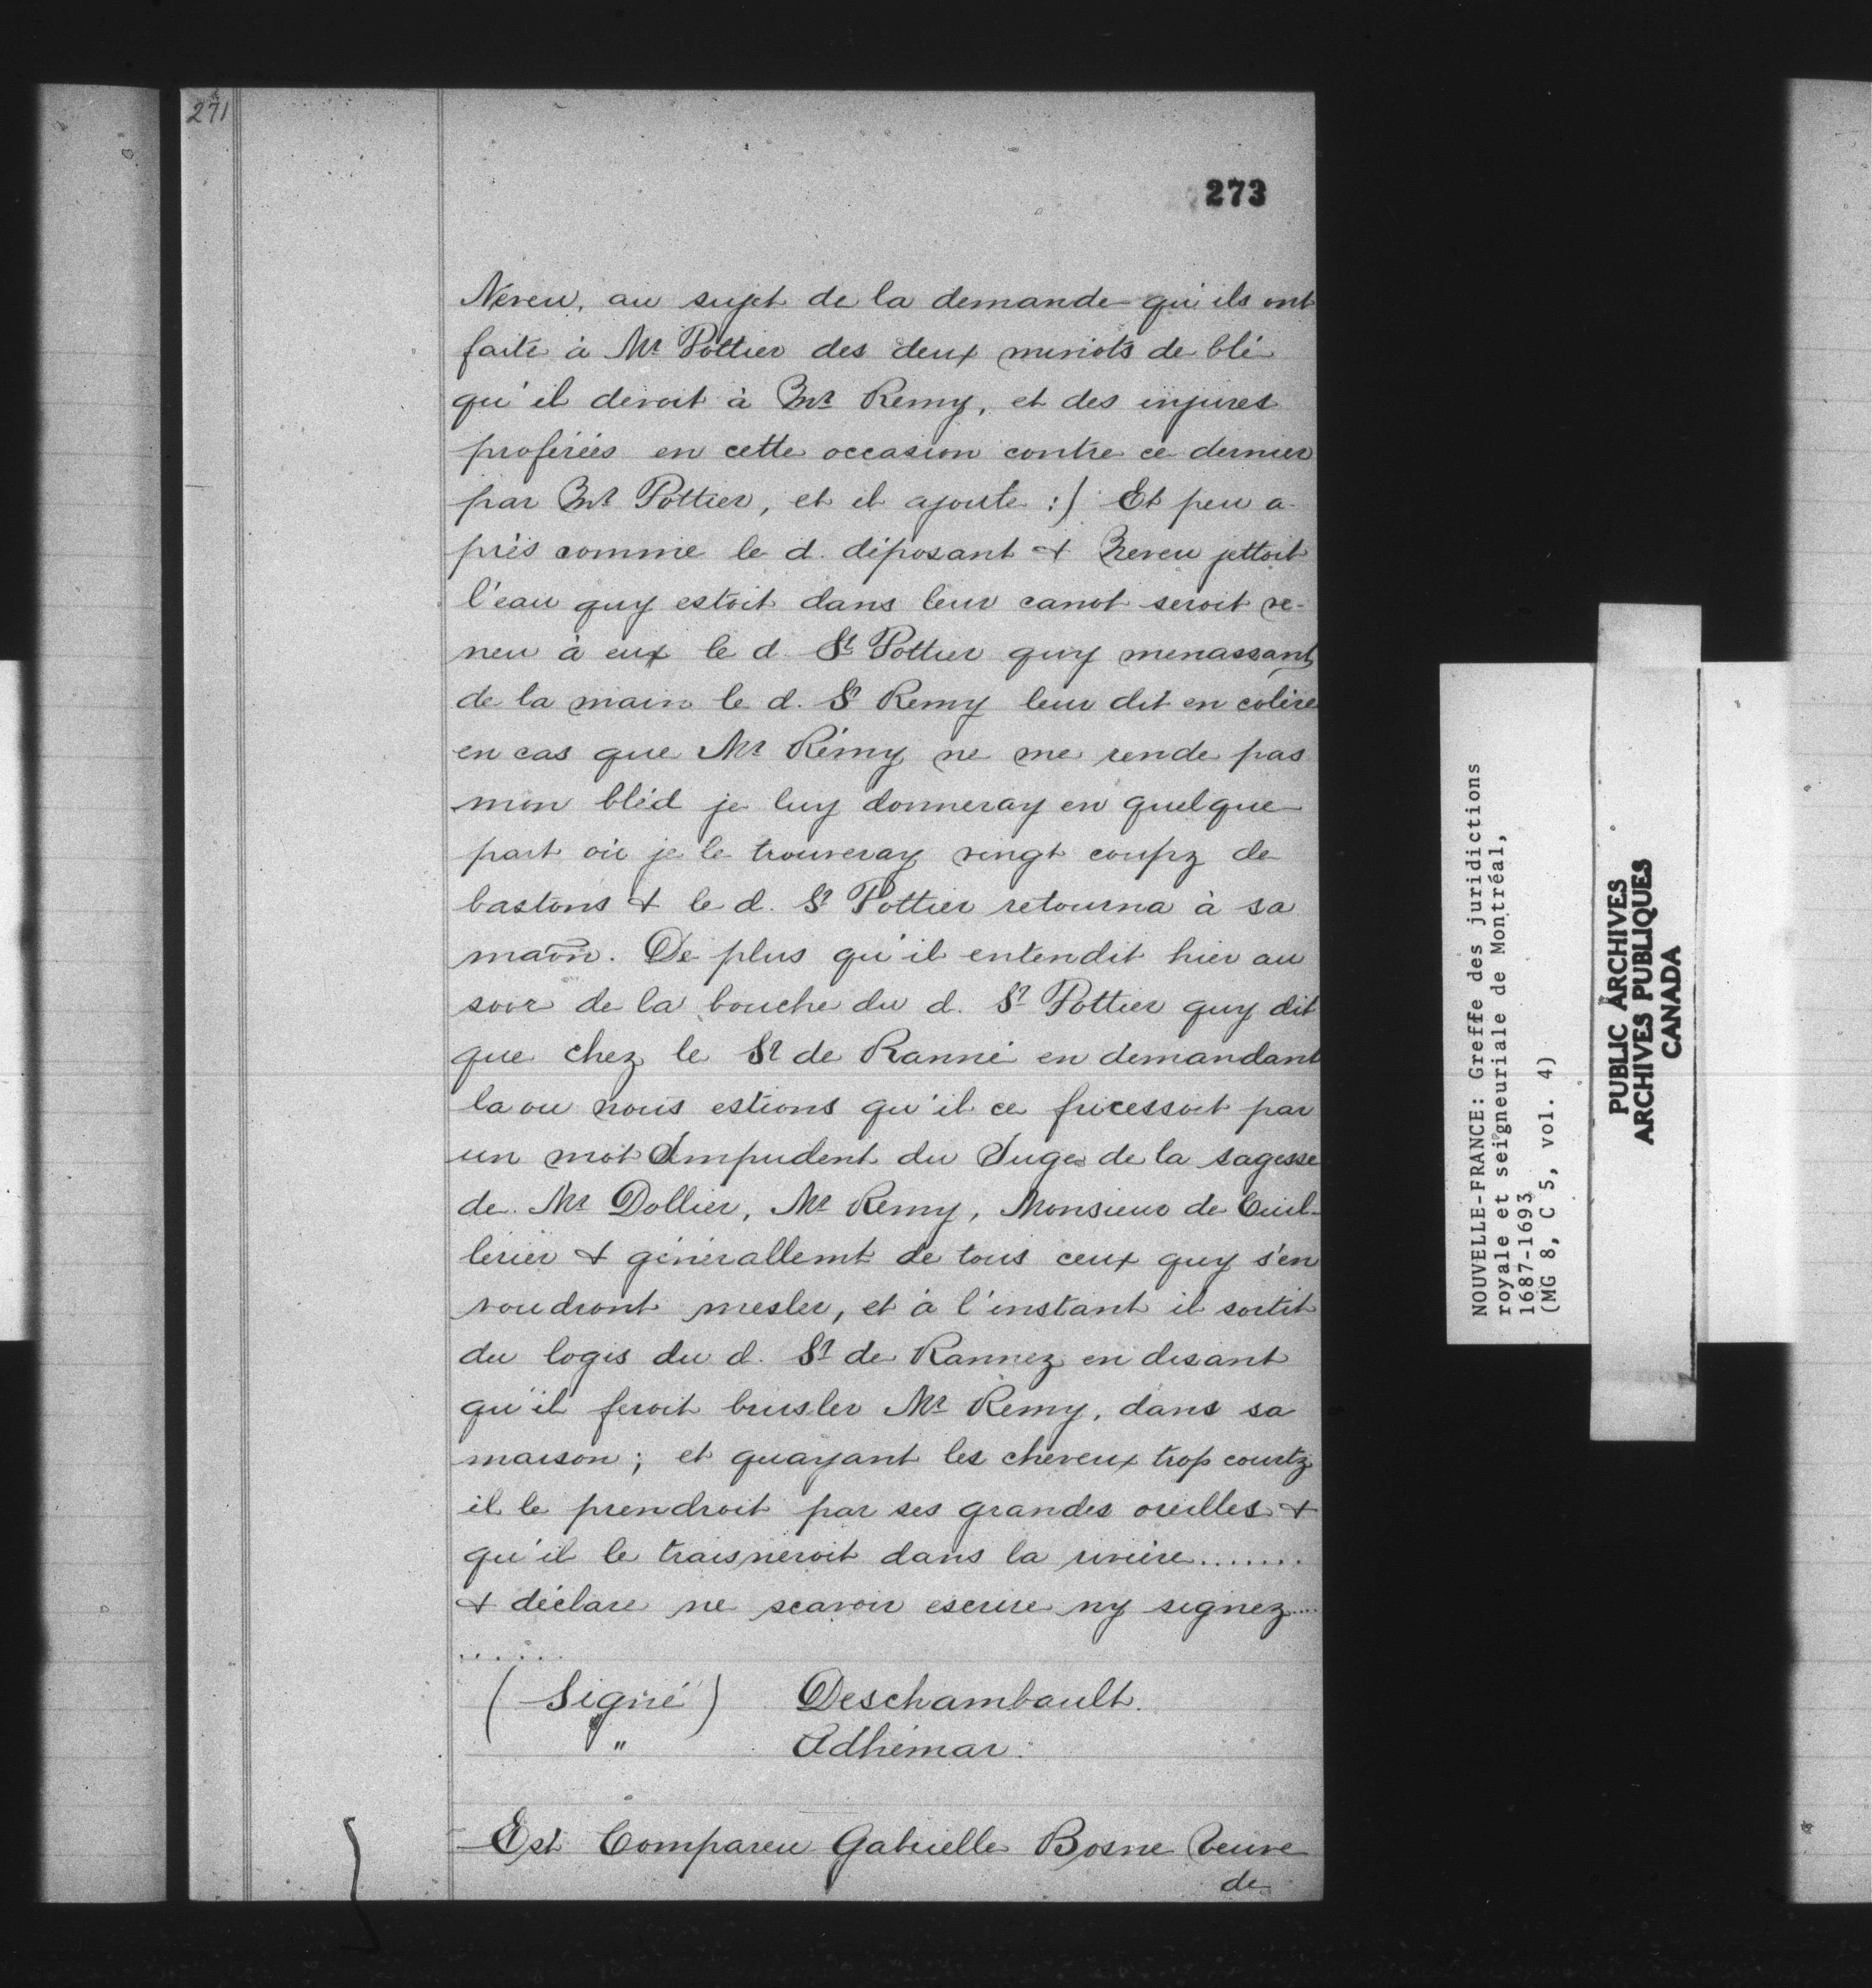 271
273
Neveu, au sujet de la demande qu'ils ont
faite à Mr Pottier des deux minots de blé
qu'il devoit à Mr Remy, et des injures
proférées en cette occasion contre ce dernier
par Mr Pottier, et il ajoute :) Et peu a-
près comme le d. déposant & Neveu jettoit
l'eau quy estoit dans leur canot seroit ve-
neu à eux le d. Sr Pottier quy menassant
de la main le d. Sr Remy leur dit en colère
en cas que Mr Rémy ne me rende pas
mon bléd je luy donneray en quelque
part où je le trouveray vingt coupz de
bastons & le d. Sr Pottier retourna à sa
maon. De plus qu'il entendit hier au
soir de la bouche du d. Sr Pottier quy dit
que chez le Sr de Ranné en demandant
la ou nous estions qu'il ce fricessoit par
un mot Impudent du Juge de la sagesse
de Mr Dollier, Mr Remy, Monsieur de Cuil-
lerier & générallemt de tous ceux quy s'en
voudront mesler, et à l'instant il sortit
du logis du d. Sr de Rannez en disant
qu'il feroit brusler Mr Remy, dans sa
maison; et quayant les cheveux trop courtz
il le prendroit par ses grandes oreilles &
qu'il le traisneroit dans la rivière.......
& déclare ne scavoir escrire ny signez....
......
(Signé) Deschambault.
" Adhémar.
Est Compareu Gabrielle Bosne veuve
de
NOUVELLE-FRANCE: Greffe des juridictions
royale et seigneuriale de Montréal,
1687-1693
(MG 8, C 5, vol. 4)
PUBLIC ARCHIVES
ARCHIVES PUBLIQUES
CANADA